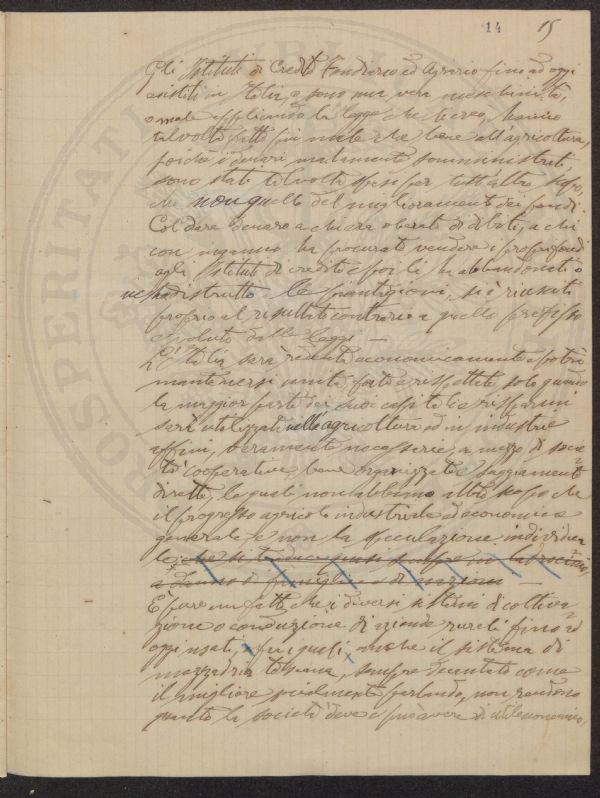 14 15
Gli Istituti di Credito Fondiario ed Agrario fino ad oggi
esistiti in Italia, o sono una vera meschinità,
o male applicando la legge che li crea, hanno
talvolta fatto più male che bene all'agricoltura,
poiché i denari malamente somministrati
sono stati talvolta spesi per tutt'altro scopo,
che non quello del miglioramento dei fondi.
Col dare denaro a chi era oberato di debiti, a chi
con inganno ha procurato vendere i propri fondi
agli Istituti di credito e poi li ha abbandonati o
ne ha distrutto le piantagioni, si è riusciti
proprio al risultato contrario a quello prefisso
e voluto dalle leggi. —
L'Italia sarà redenta economicamente e potrà
mantenersi unita forte e rispettata solo quando
la maggior parte dei suoi capitali e risparmi
sarà utilizzata nell'agricoltura ed in industrie
affini, veramente necessarie, a mezzo di socie
tà cooperative, bene organizzate e saggiamente
dirette, le quali non abbiano altro scopo che
il progresso agricolo industriale ed economico
generale e non la speculazione individua
le che si traduce quasi sempre in
a danno di famiglie e di nazioni —
È pure un fatto che i diversi sistemi di coltiva
zione o conduzione di aziende rurali fino ad
oggi usati, fra i quali anche il sistema di
mezzadria toscana, sempre decantato come
il migliore socialmente parlando, non rendono
quanto la società deve e può avere di utile economico,